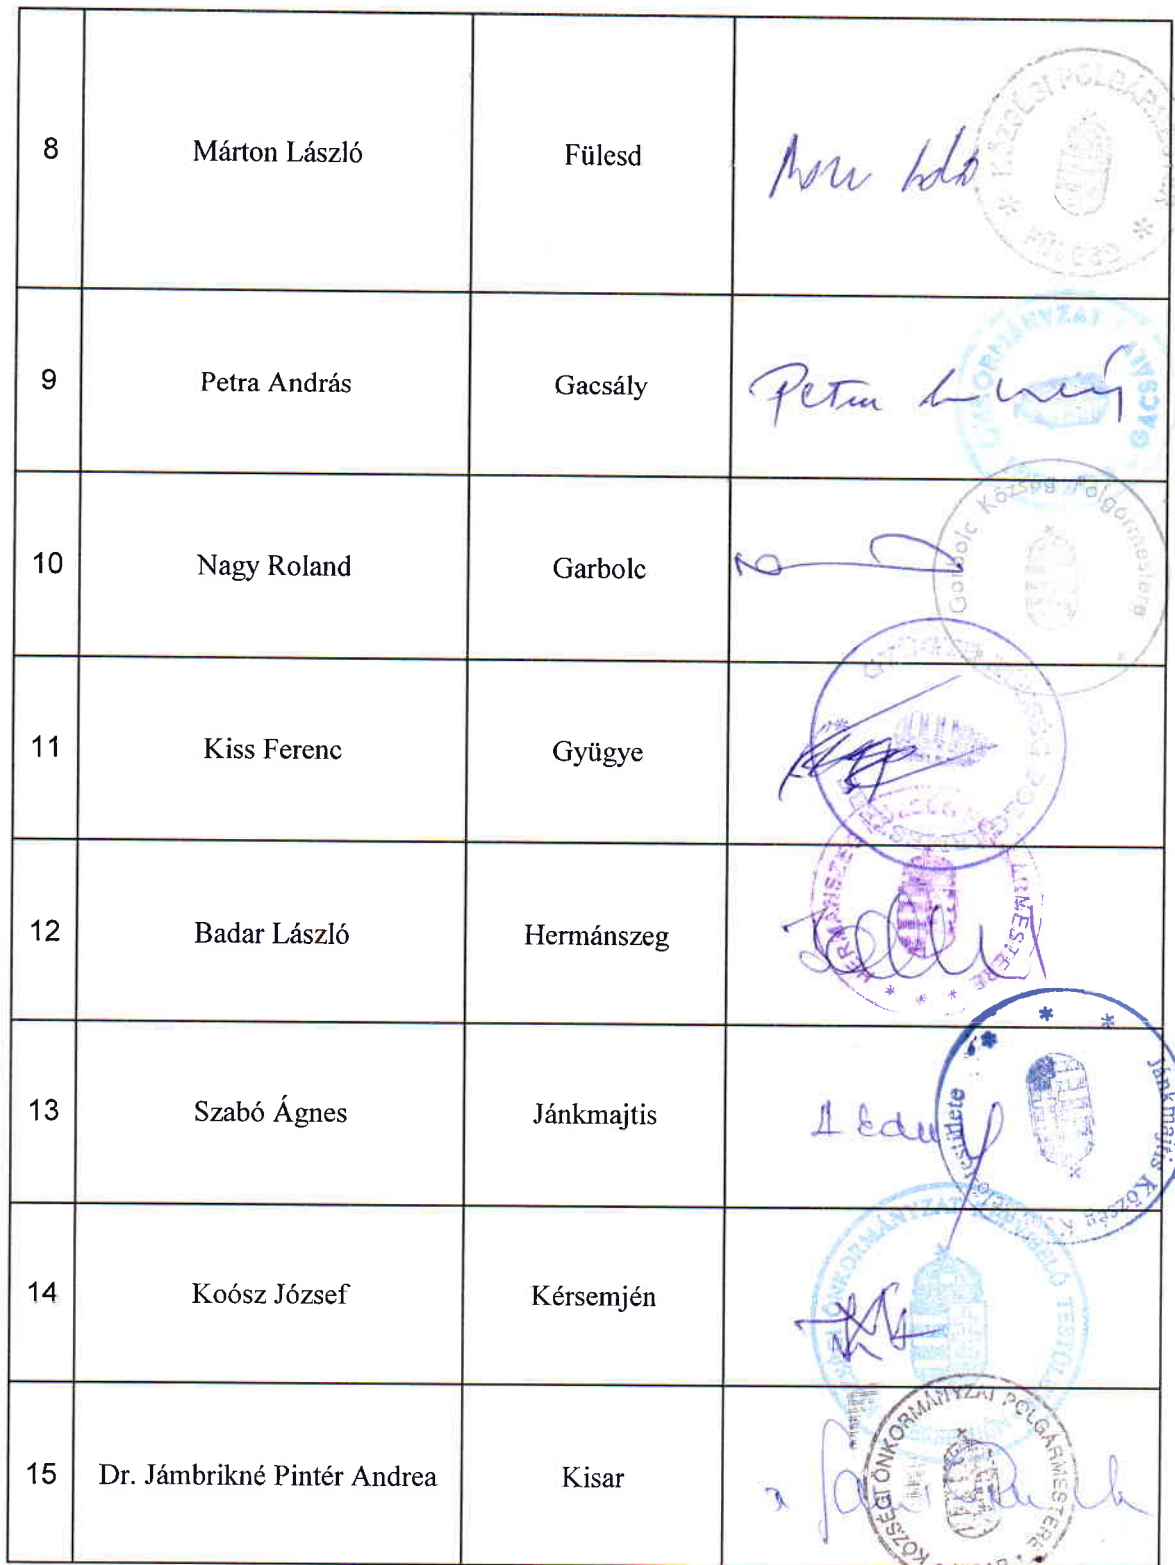 8 Márton László Fülesd
KÖZSÉGI POLGÁRMESTER * FÜLESD *
9 Petra András Gacsály
ÖNKORMÁNYZAT GACSÁLY
Petra
10 Nagy Roland Garbolc
Garbolc Község Polgármestere *
11 Kiss Ferenc Gyügye
12 Badar László Hermánszeg
HERMÁNSZEG POLGÁRMESTERE * * *
13 Szabó Ágnes Jánkmajtis
Jánkmajtis Község Képviselő-testülete * * *
14 Koósz József Kérsemjén
KÖZSÉGI ÖNKORMÁNYZAT KÉPVISELŐ TESTÜLETE
15 Dr. Jámbrikné Pintér Andrea Kisar
KÖZSÉGI ÖNKORMÁNYZAT POLGÁRMESTERE